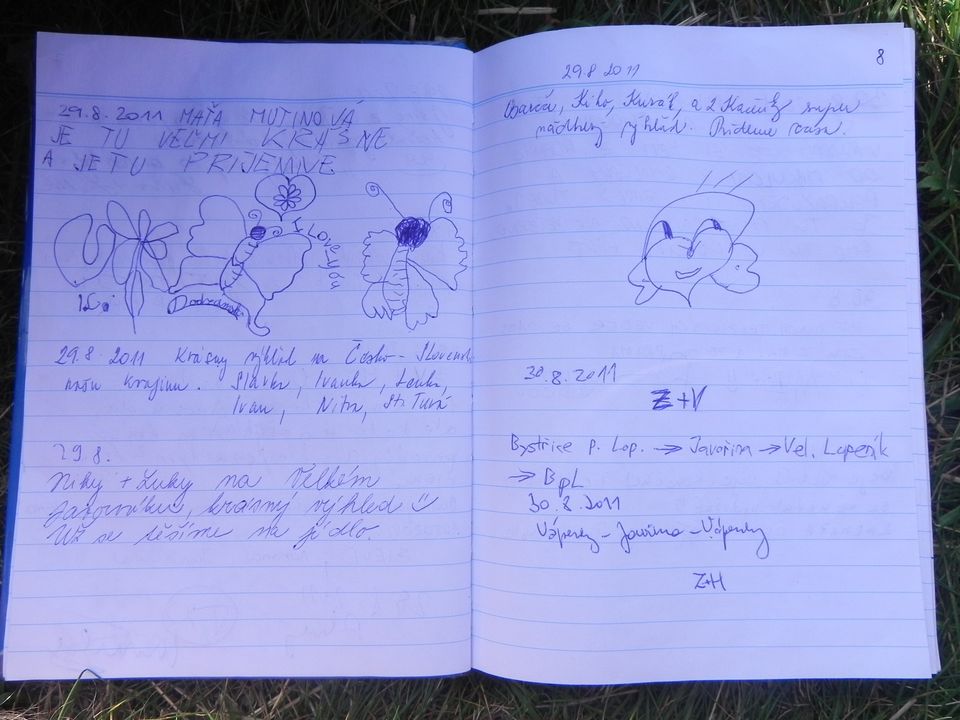 29.8.2011 MAŤA MUTINOVÁ
JE TU VEĽMI KRÁSNE
A JE TU PRÍJEMNE
I Love you
29.8.2011 Krásny výhľad na Česko-Slovensk
krajinu. Slávka, Ivanka, Lenka,
Ivan, Nitra, St. Turá
29.8.
Niky + Luky na Velkém
krásný výhled
Už se těšíme na jídlo.
8
29.8 2011
Kiko, a 2 super
výhľad. Prídeme zasa.
30.8.2011
Z+V
Bystřice p. Lop. → Javořina → Vel. Lopeník
→ BpL
30.8.2011
Vápenky - Javořina - Vápenky
Z+H